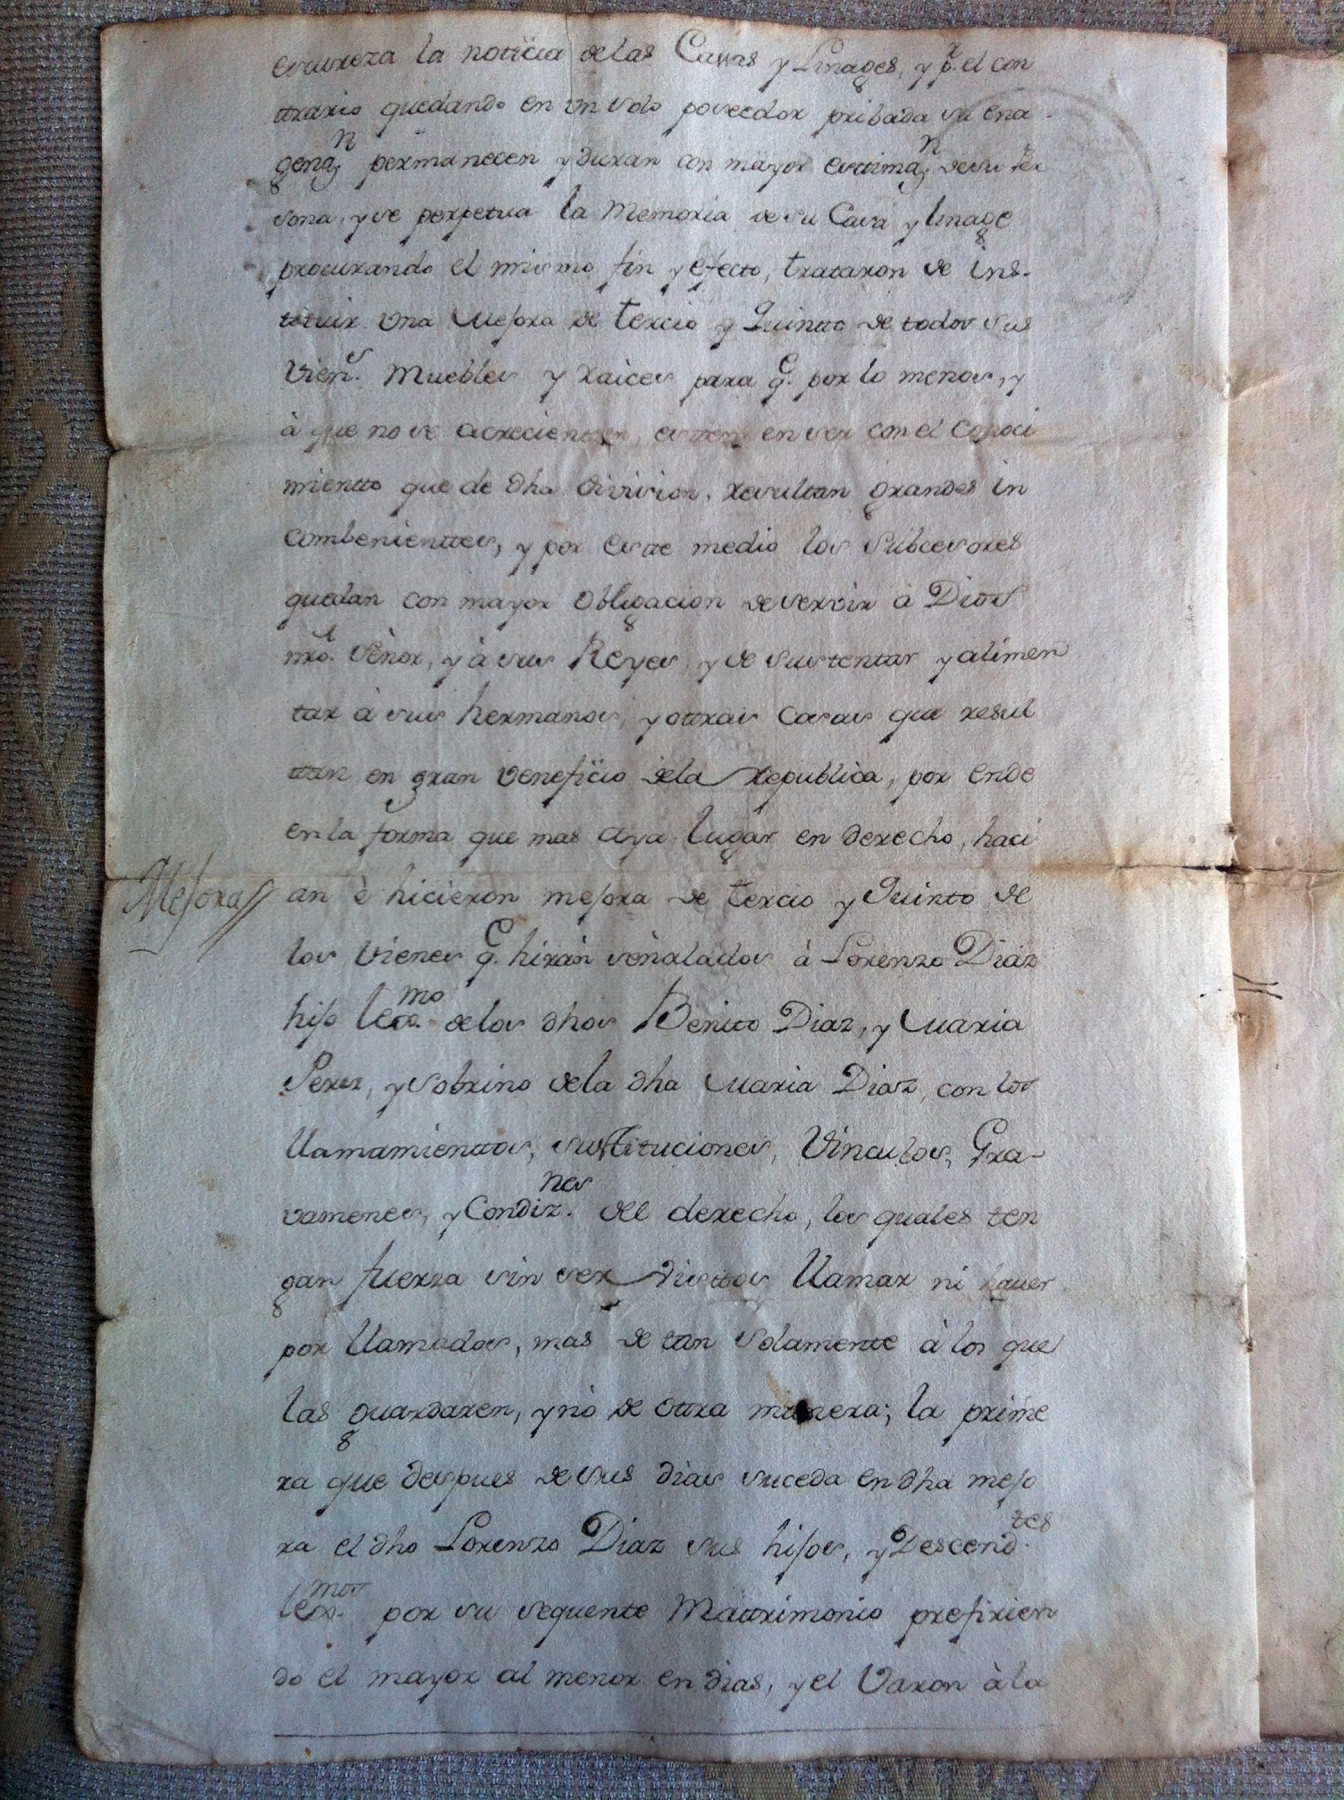 escureza la noticia de las Casas y Linages, y pr. el con
trario quedando en un solo poseedor pribada su ena-
genazn permanecen y duran con mayor estimazn de su Per
sona, y se perpetua la Memoria de su Casa y linage
procurando el mismo fin y efecto, trataron de ins-
tetuir una Mejora de tercio y Quintto de todos sus
viens. Muebles y raices para qe. por lo menos, y
à que no se acrecienten, esten en ser con el Conoci
mientto que de dha division, resulttan grandes in
combenienttes, y por estte medio los subcesores
quedan con mayor obligacion de servir à Dios
nro. señor, y à sus Reyes, y de sustentar y alimen
tar à sus hermanos, y ottras cosas que resul
ttan en gran veneficio de la republica, por ende
en la forma que mas aya lugar en derecho, haci
Mejora an è hicieron mejora de tercio y Quinto de
los vienes qe. hiràn señalados à Lorenzo Diaz
hijo lexmo. de los dhos Benito Diaz, y Maria
Perez, y Sobrino de la dha Maria Diaz, con los
llamamienttos, sustituciones, Vinculos, Gra-
vamenes, y Condiznes. del derecho, los quales ten
gan fuerza sin ser visttos llamar ni hauer
por llamados, mas de tan solamentte à los que
las guardaren, y nò de ottra manera; la prime
ra que despues de sus dias suceda en dha mejo
ra el dho Lorenzo Diaz sus hijos, y Descendtes.
lexmos. por su seguente Mattrimonio prefirien
do el mayor al menor en dias, y el Varon à la